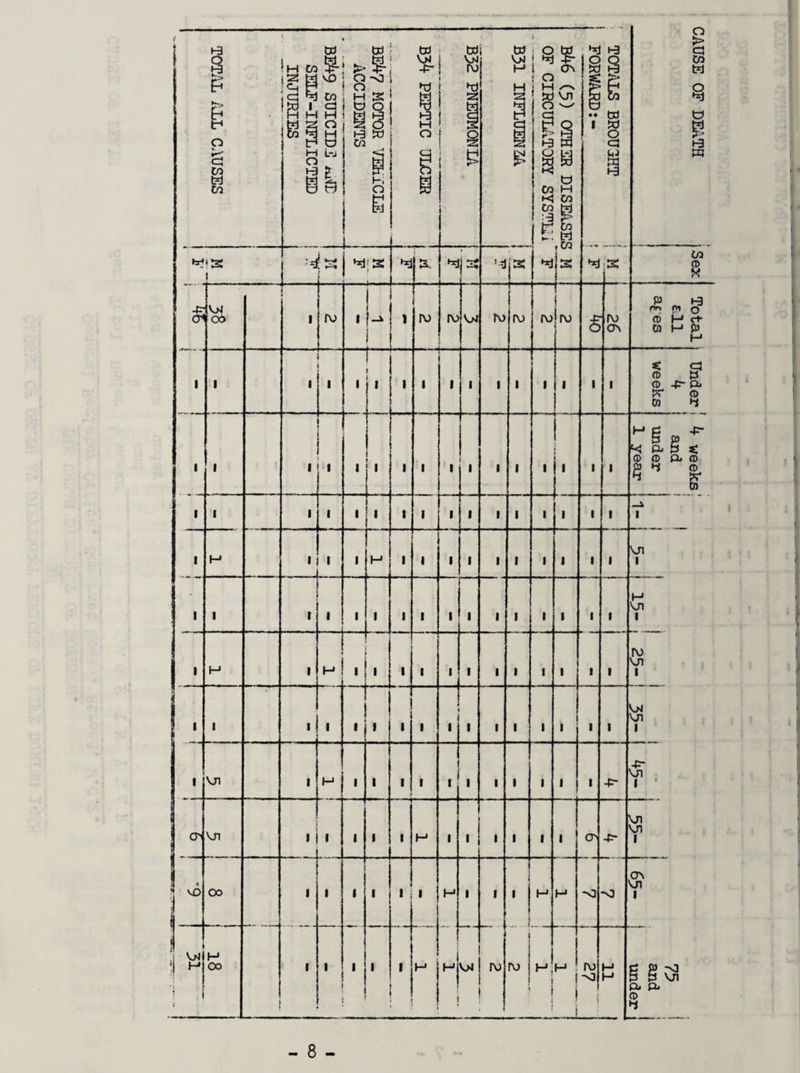 CAUSE OF DEATH Sex Total all ages Under 4 weeks 4 weeks and under 1 year 1- 5- 15- 25- 35- 45- 55- 65- 75 and under
TOTALS BROUGHT M 26 - - - - - - - 4 4 7 11
FORWARD:- F 40 - - - - - - - - 6 7 27
B46 (5) OTHER DISEASES M 2 - - - - - - - - - 1 1
OF CIRCULATORY SYSTEM F 2 - - - - - - - - - 1 1
B31 INFLUENZA M 2 - - - - - - - - - - 2
F 2 - - - - - - - - - - 2
B32 PNEUMONIA M 3 - - - - - - - - - - 3
F 2 - - - - - - - - - 1 1
B34 PEPTIC ULCER M 2 - - - - - - - - 1 - 1
F - - - - - - - - - - - -
BE47 MOTOR VEHICLE M 1 - - - 1 - - - - - - -
ACCIDENTS F - - - - - - - - - - - -
BE49 SUICIDE AND M 2 - - - - - 1 - 1 - - -
SELF-INFLICTED F - - - - - - - - - - - -
INJURIES
TOTAL ALL CAUSES M 38 - - - 1 - 1 - 5 5 8 18
F 46 - - - - - - - - 6 9 31
- 8 -